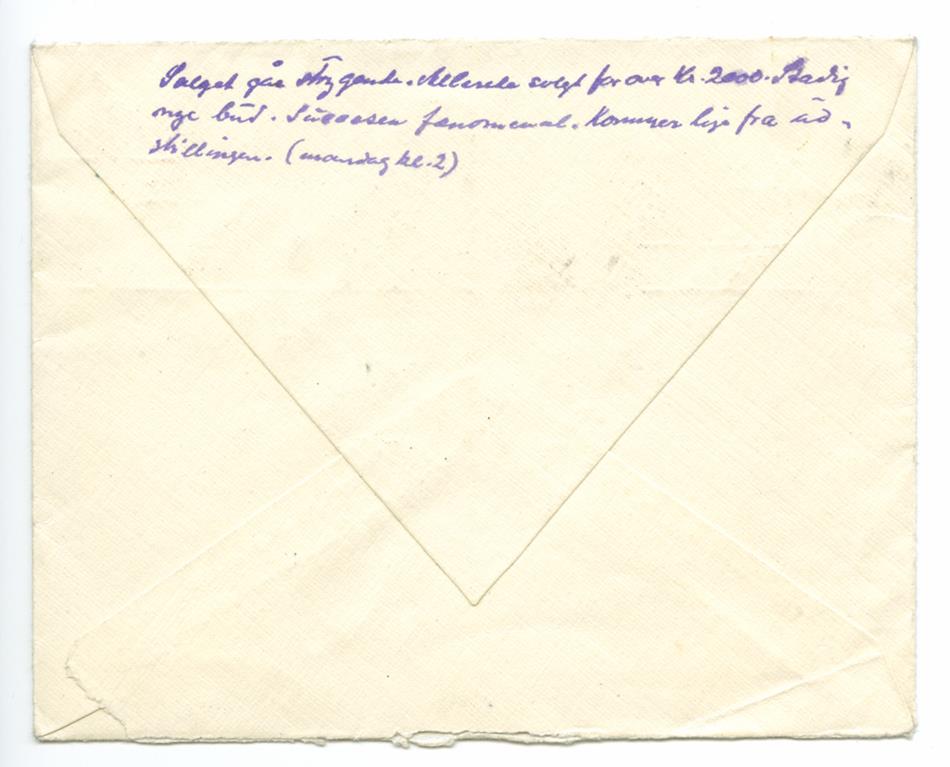 Salget går strygende. Allerede solgt for over Kr. 2000. Stadig
nye bud. Succesen fænomenal. Kommer lige fra ud-
stillingen. (mandag kl. 2)